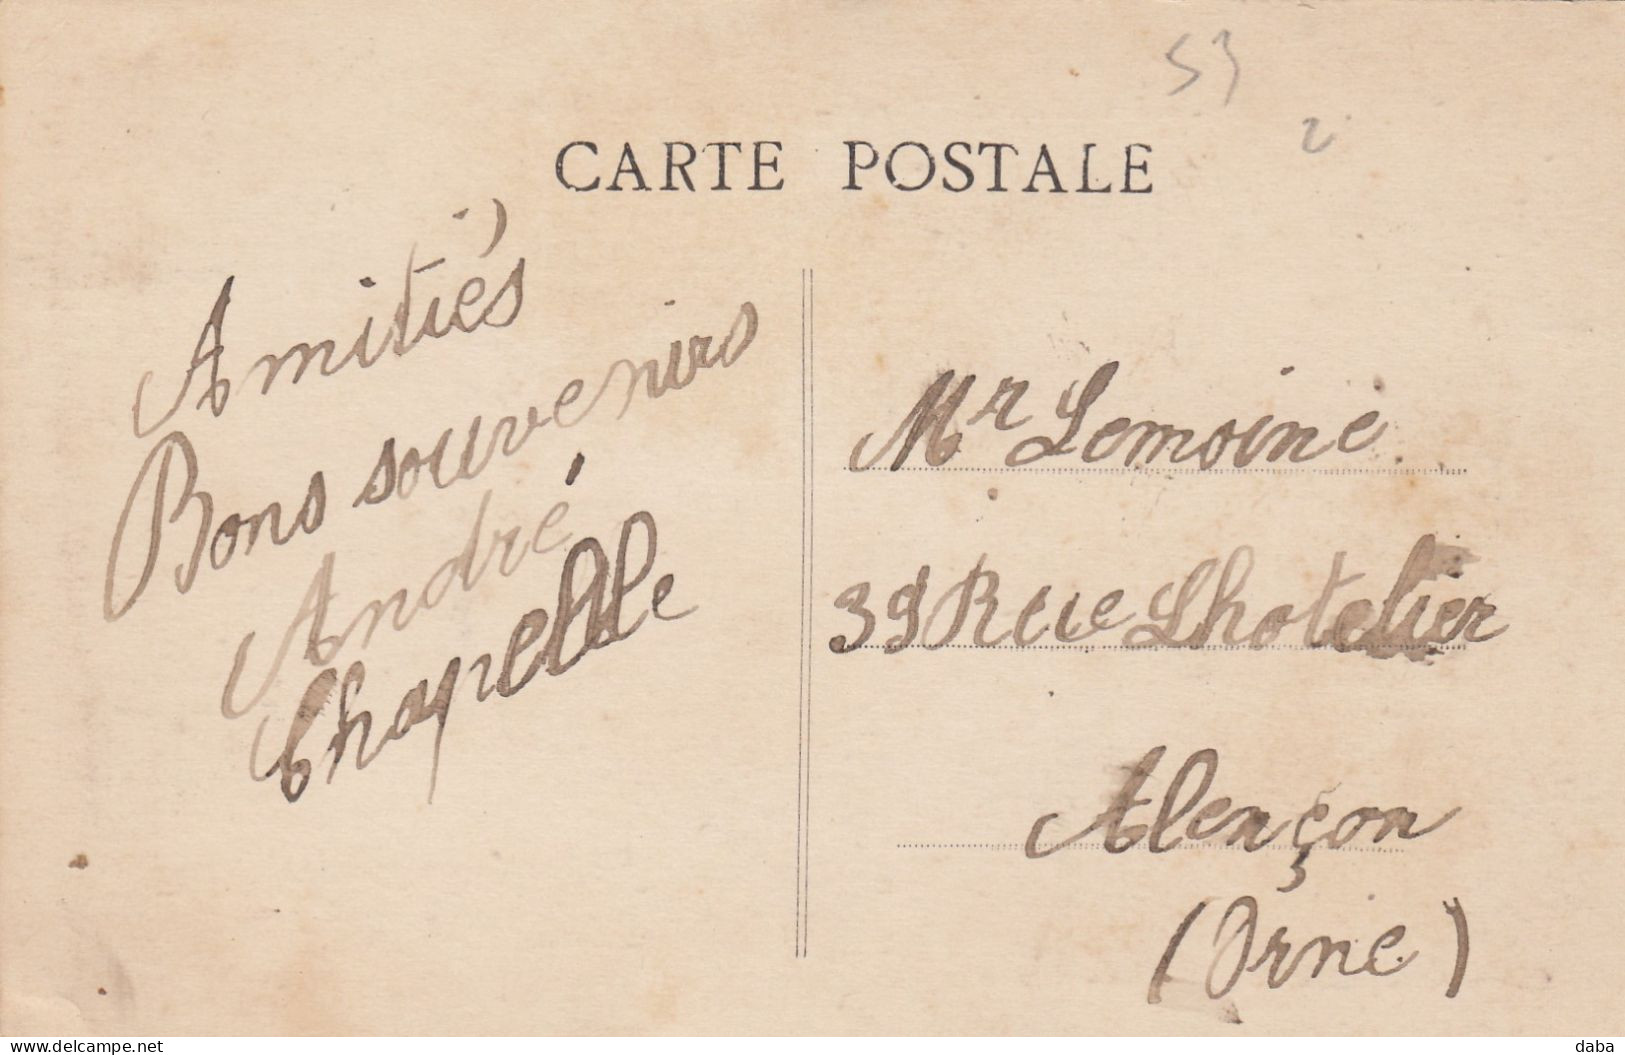 53
2
CARTE POSTALE
Amitiés
Bons souvenirs
André
Chapelle
Mr Lemoine
39 Rue Lhotelier
Alençon
(Orne)
delcampe.net
daba